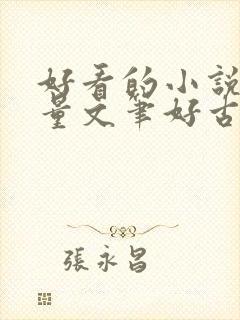 好看的小說
量文筆好古
張永昌